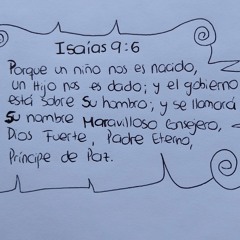 Isaías 9:6
Porque un niño nos es nacido,
un Hijo nos es dado; y el gobierno
está sobre Su hombro; y se llamará
Su nombre Maravilloso Consejero,
Dios Fuerte, Padre Eterno,
Príncipe de Paz.